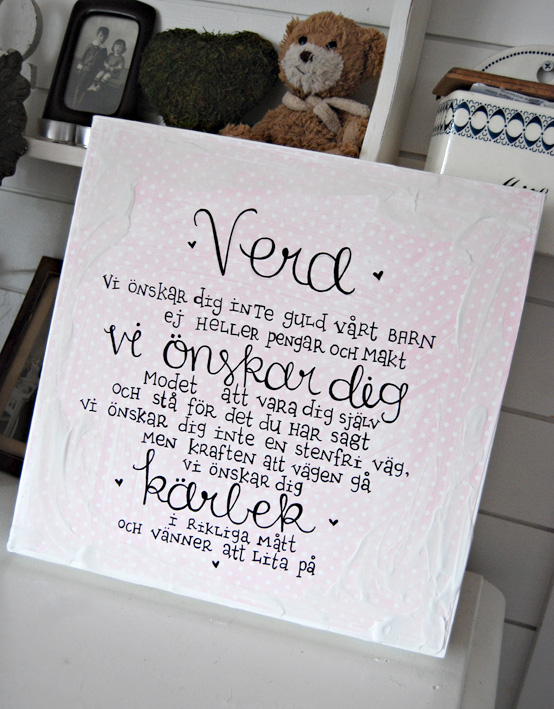 Verd
Vi önskar dig inte guld vårt barn
ej heller pengar och makt
Vi önskar dig
Modet att vara dig själv
och stå för det du har sagt
Vi önskar dig inte en stenfri väg,
men kraften att vägen gå
vi önskar dig
kärlek
i rikliga mått
och vänner att lita på